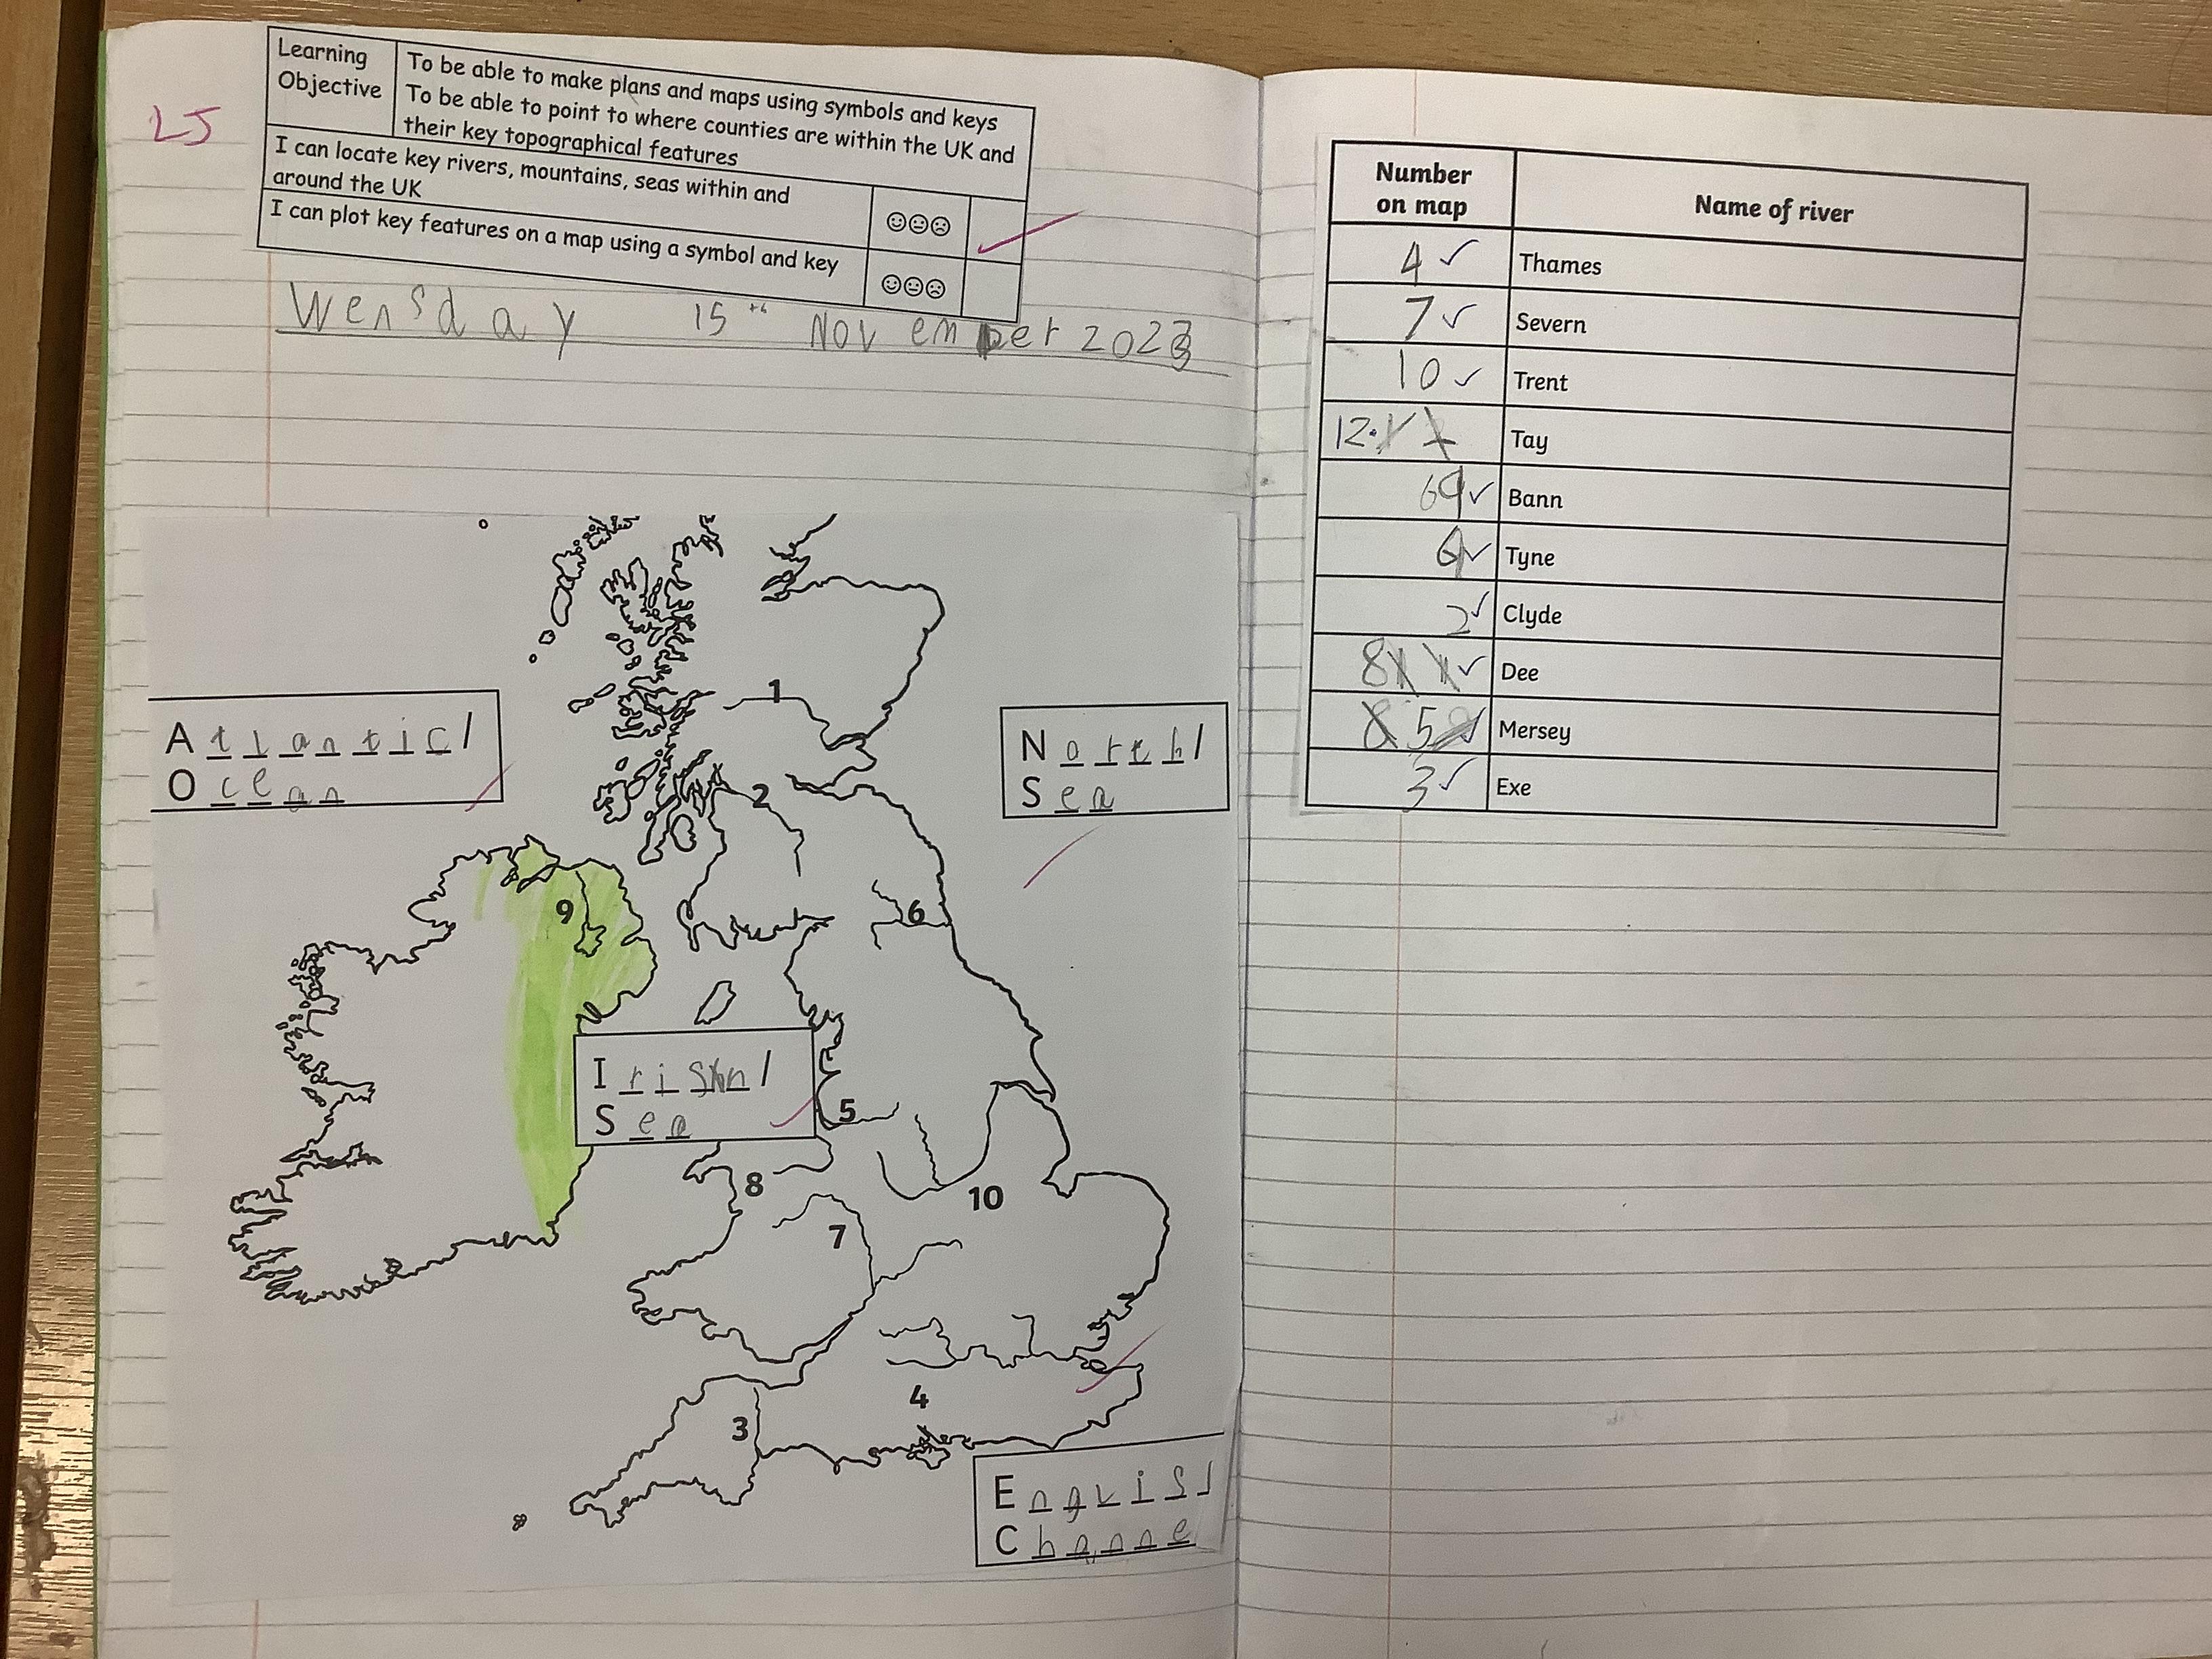 LJ
Learning Objective
To be able to make plans and maps using symbols and keys
To be able to point to where counties are within the UK and
their key topographical features
I can locate key rivers, mountains, seas within and
around the UK
I can plot key features on a map using a symbol and key
Wensday 15th November 2023
1
Atlantic/
Ocean
North/
Sea
2
9
6
Irish/
Sea
5
8
10
7
4
3
English
Channe
Number on map
Name of river
4 Thames
7 Severn
10 Trent
Tay
9 Bann
6 Tyne
2 Clyde
8 Dee
5 Mersey
3 Exe